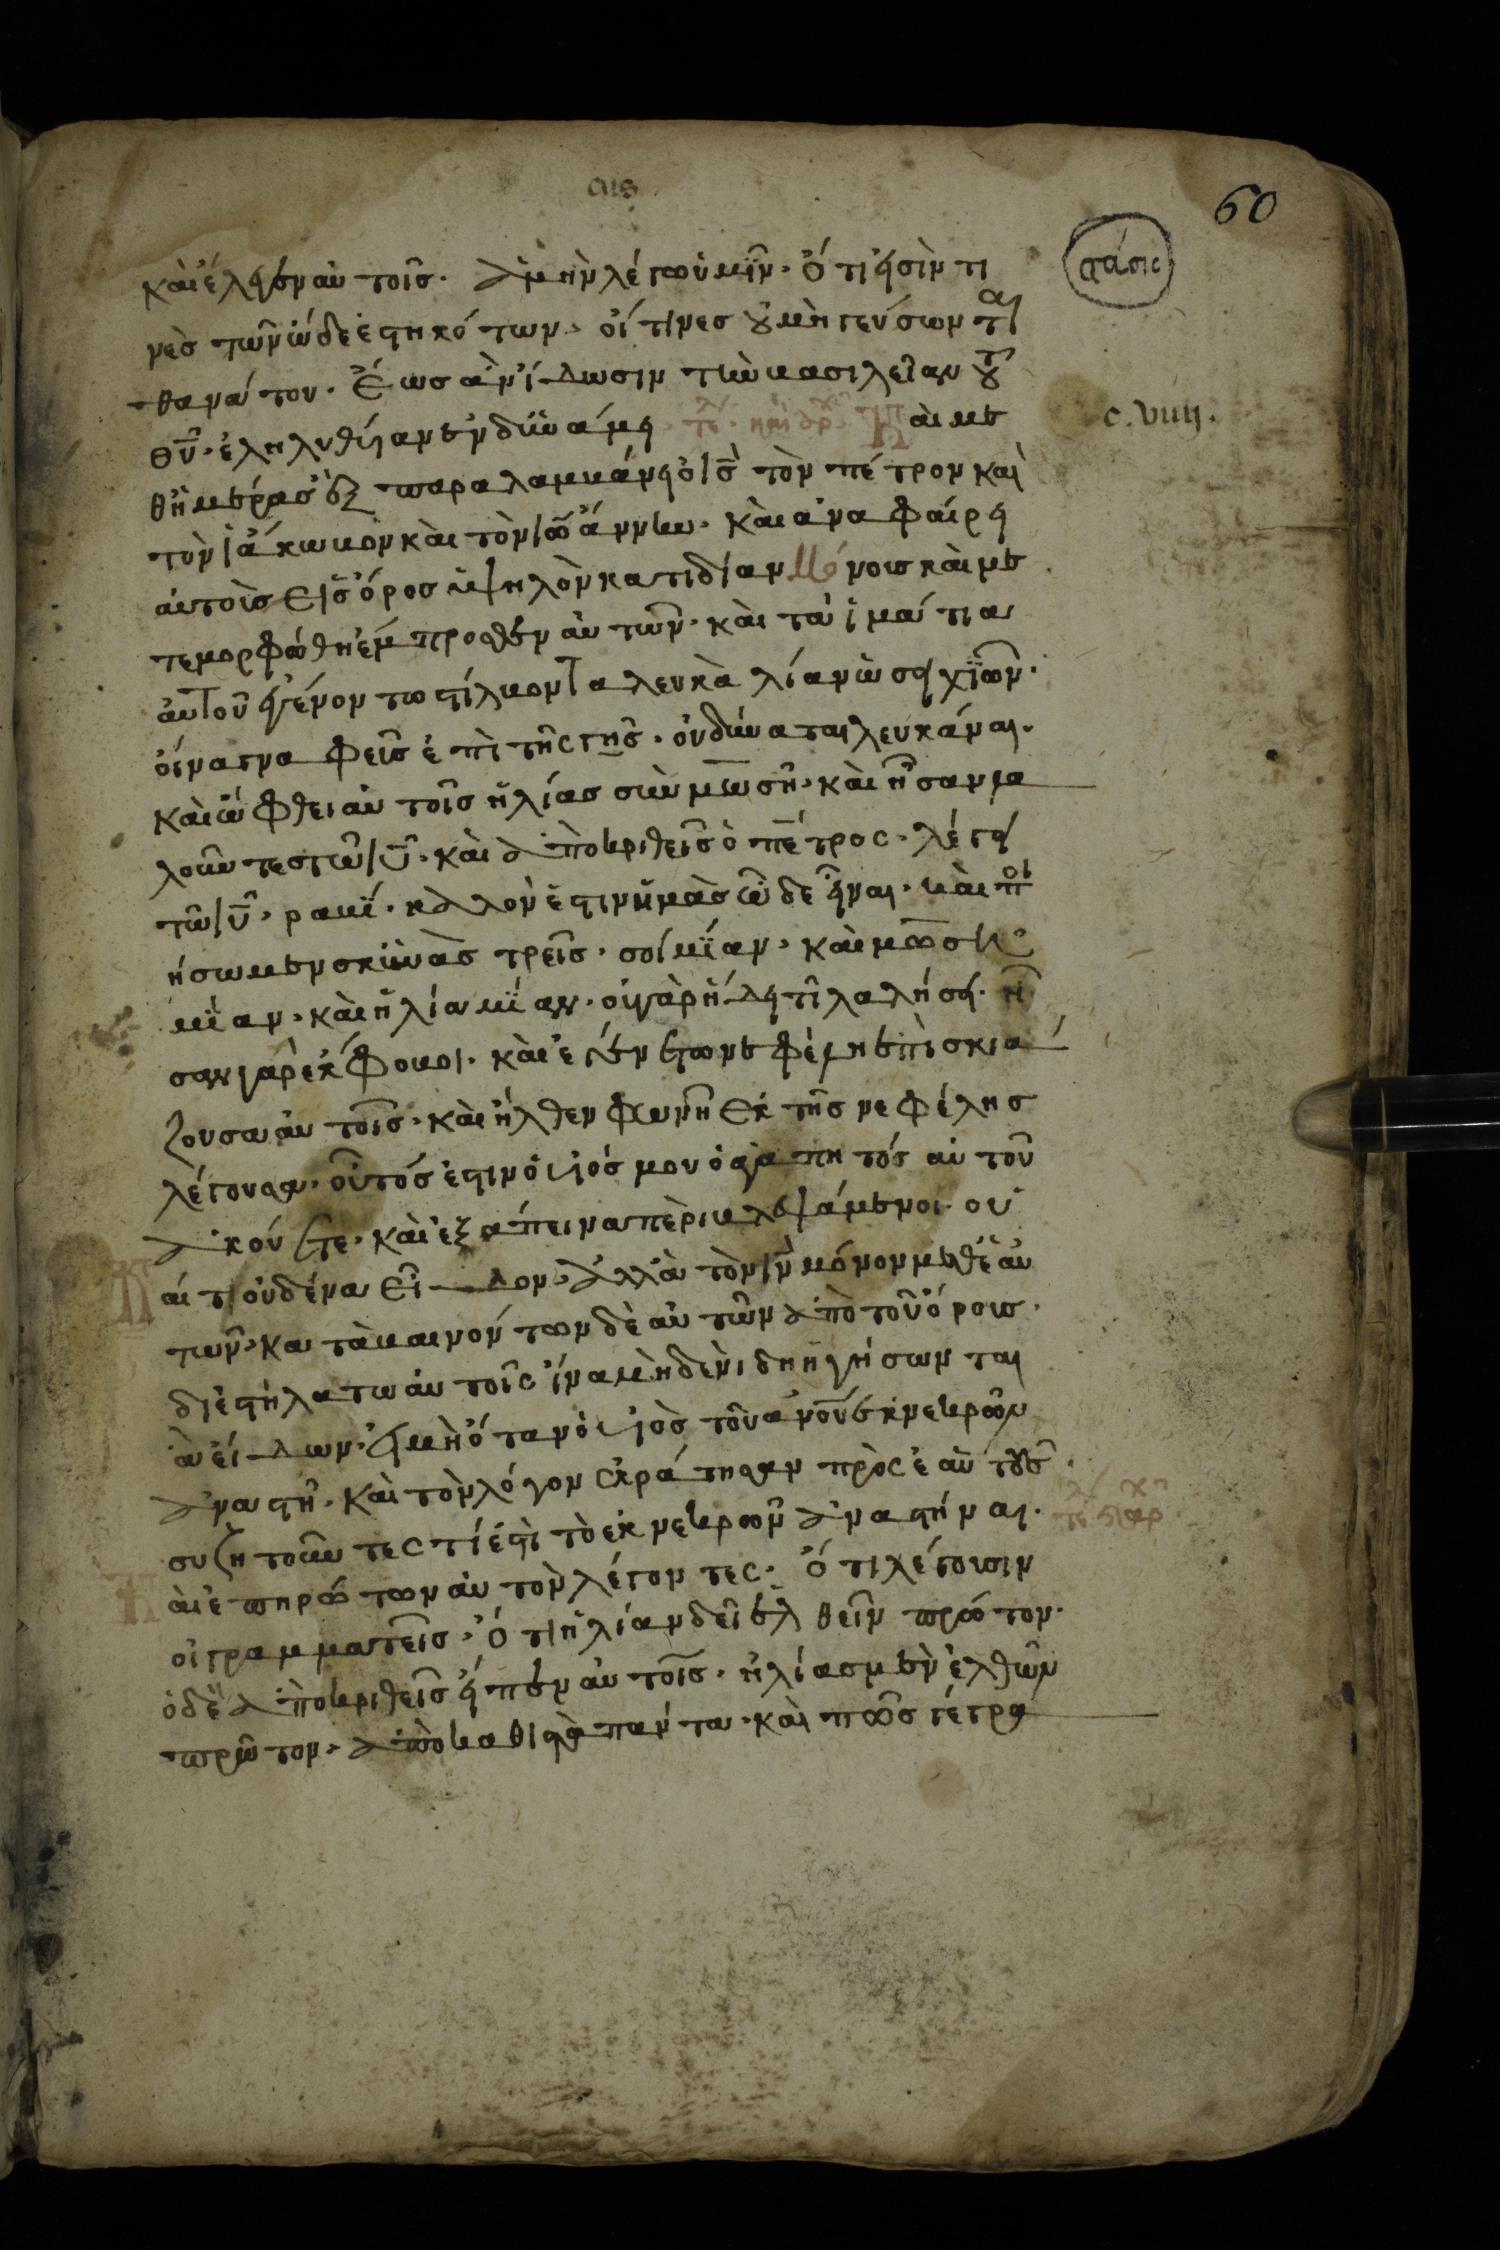 60
στάσις
καὶ ἔλεγεν αὐτοῖς· ἀμὴν λέγω ὑμῖν· ὅτι εἰσὶν τι
νὲς τῶν ὧδε ἑστηκότων· οἵτινες οὐ μὴ γεύσωνται
θανάτου· ἕως ἂν ἴδωσιν τὴν βασιλείαν τοῦ
θυ· ἐληλυθυίαν ἐν δυνάμει· τε αὶ με
θ ἡμέρας ἓξ παραλαμβάνει ὁ ις τὸν πέτρον καὶ
τὸν ἰάκωβον καὶ τὸν ἰωάννην· καὶ ἀναφαίρει
αὐτοὺς εἰς ὄρος ὑψηλὸν κατιδίαν μόνους καὶ με
τεμορφώθη ἔμπροσθεν αὐτῶν· καὶ τὰ ἱμάτια
αὐτοῦ ἐγένοντω στίλβοντα λευκὰ λίαν ὡσεὶ χιὼν·
οἷα γναφεῖς ἐπὶ τῆς γῆς· οὐ δύναται λευκάναι·
καὶ ὤφθει αὐτοῖς ἠλίας σὺν μωσῆ· καὶ ἦσαν λα
λοῦντες τῶ ιυ· καὶ ἀποκριθεῖς ὁ πέτρος· λέγει
τῶ ιυ· ραβί· καλὸν ἐστιν ἡμὰς ὧδε εἶναι· καὶ ποι
ήσωμεν σκηνὰς τρεῖς· σοὶ μίαν· καὶ μωσῆ
μίαν· καὶ ἠλία μίαν· οὐ γὰρ ἤδει τί λαλήσει· ἦ
σαν γὰρ ἔκφοβοι· καὶ ἐγένετω νεφέλη ἐπισκιά
ζουσα αὐτοῖς· καὶ ἦλθεν φωνὴ ἐκ τῆς νεφέλης
λέγουσα· οὗτός ἐστιν ὁ υἱός μου ὁ ἀγαπητός αὐτοῦ
ἀκούετε· καὶ ἐξάπεινα περιβλεψάμενοι· οὐ
αί τι οὐδένα εἶδον· ἀλλὰ τὸν ιν μόνον μεθ ἑαυ
τῶν· καταβαινόντων δὲ αὐτῶν ἀπὸ τοῦ ὄρους·
διεστήλατω αὐτοῖς ἵνα μηδενὶ διηγήσωνται
ἃ εἴδων· εἰ μὴ ὅταν ὁ υἱὸς τοῦ ανου ἐκ νεκρῶν
ἀναστῆ· καὶ τὸν λόγον ἐκράτησαν πρὸς ἑαυτοὺς·
συζητοῦντες τί ἐστὶ τὸ ἐκ νεκρῶν ἀναστήναι·
αὶ ἐπηρώτων αὐτὸν λέγοντες· ὅτι λέγουσιν
οἱ γραμματεῖς· ὅτι ἠλίαν δεῖ ἐλθεῖν πρότον·
ὁ δὲ ἀποκριθεὶς εἶπεν αὐτοῖς· ἠλίας μὲν ἐλθὼν
πρῶτον· ἀποκαθιστᾶ πάντα· καὶ πῶς γέγρα
c. viiij.